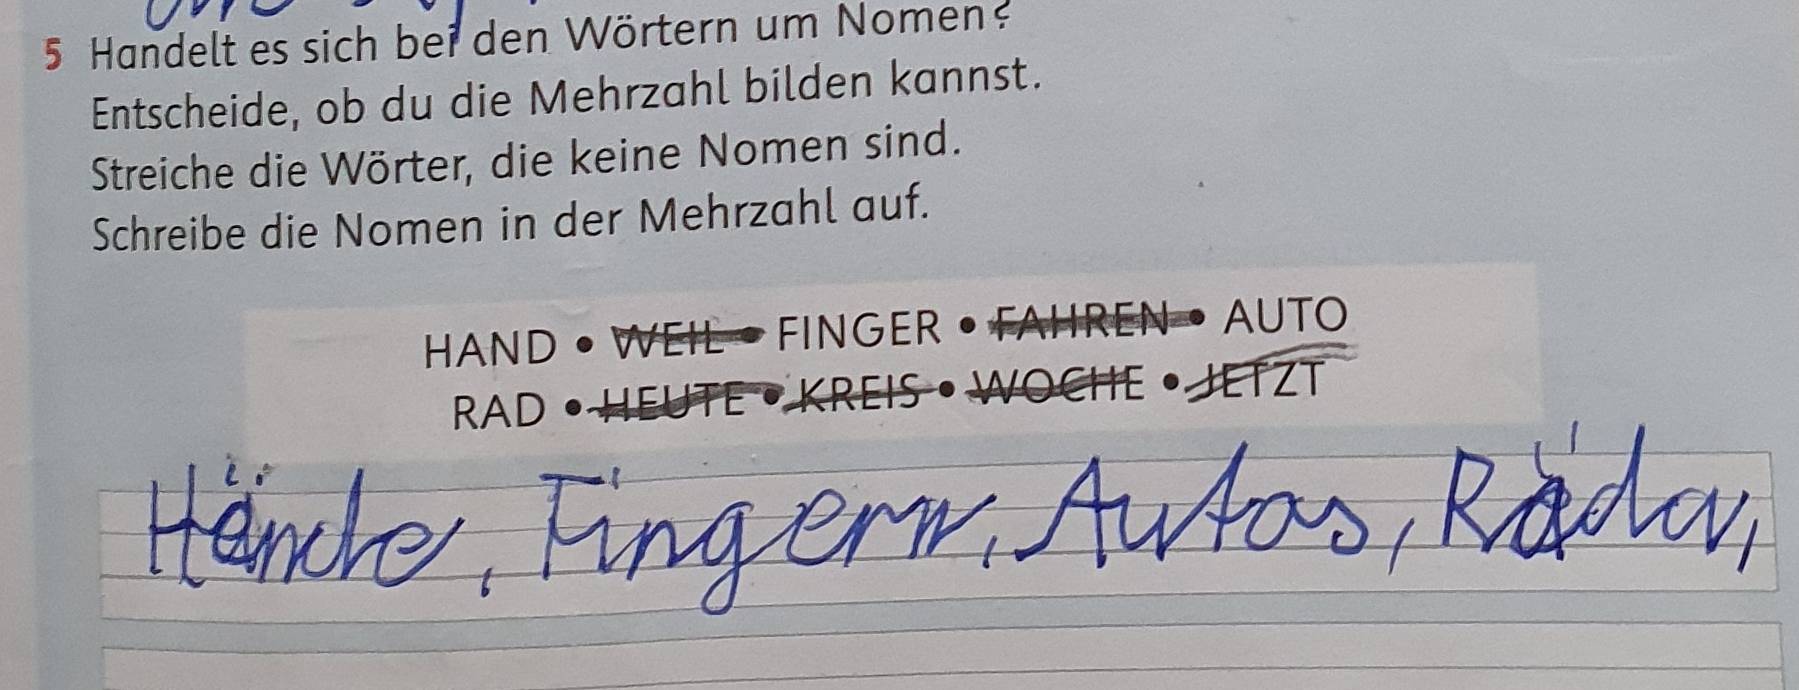 5 Handelt es sich bei den Wörtern um Nomen?
Entscheide, ob du die Mehrzahl bilden kannst.
Streiche die Wörter, die keine Nomen sind.
Schreibe die Nomen in der Mehrzahl auf.
HAND • WEIL • FINGER • FAHREN • AUTO
RAD • HEUTE • KREIS • WOCHE • JETZT
Hände, Fingern, Autos, Räda,